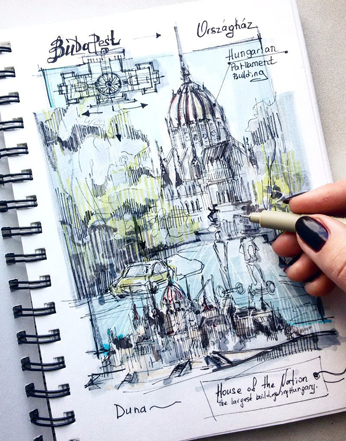 BUDAPEST
Országház
Hungarian
Parliament
Building
Duna
House of the Nation
the largest building in Hungary.